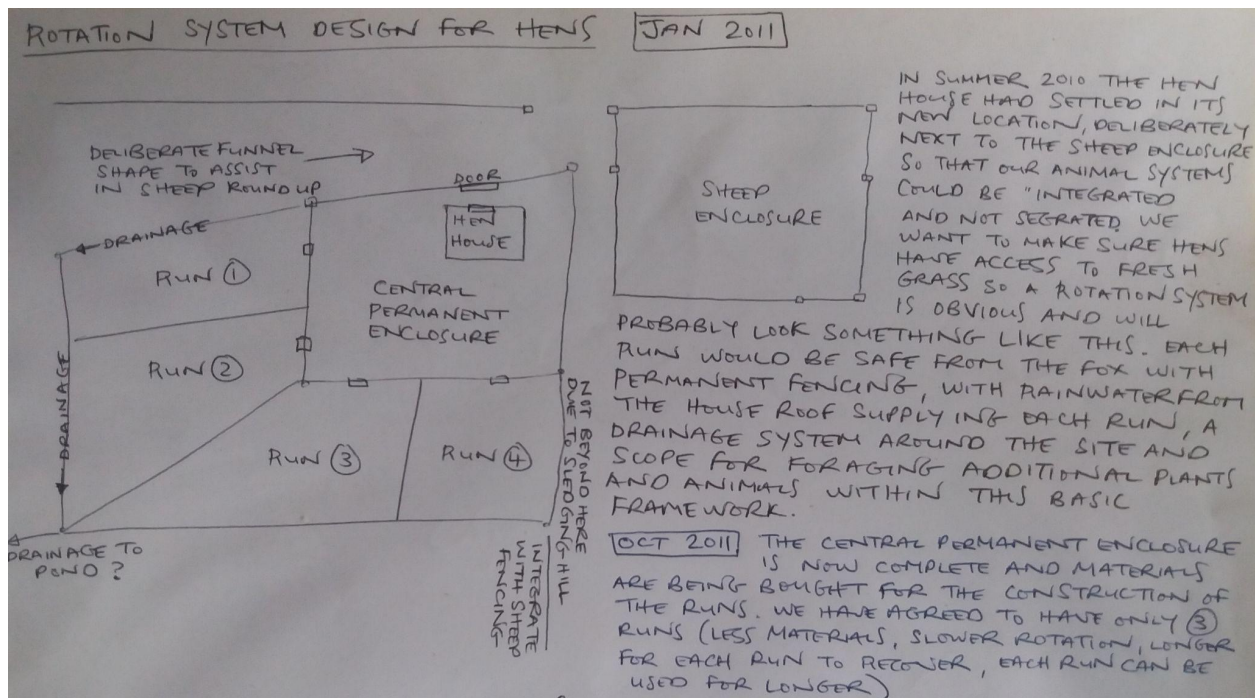 ROTATION SYSTEM DESIGN FOR HENS JAN 2011
DELIBERATE FUNNEL
SHAPE TO ASSIST
IN SHEEP ROUND UP
DOOR
HEN
HOUSE
DRAINAGE
RUN 1
CENTRAL
PERMANENT
ENCLOSURE
RUN 2
DRAINAGE
RUN 3
RUN 4
NOT BEYOND HERE
DUE TO SLEDGING HILL
INTEGRATE
WITH SHEEP
FENCING
DRAINAGE TO
POND ?
SHEEP
ENCLOSURE
IN SUMMER 2010 THE HEN
HOUSE HAD SETTLED IN ITS
NEW LOCATION, DELIBERATELY
NEXT TO THE SHEEP ENCLOSURE
SO THAT OUR ANIMAL SYSTEMS
COULD BE "INTEGRATED
AND NOT SEGRATED. WE
WANT TO MAKE SURE HENS
HAVE ACCESS TO FRESH
GRASS SO A ROTATION SYSTEM
IS OBVIOUS AND WILL
PROBABLY LOOK SOMETHING LIKE THIS. EACH
RUN WOULD BE SAFE FROM THE FOX WITH
PERMANENT FENCING, WITH RAINWATER FROM
THE HOUSE ROOF SUPPLYING EACH RUN, A
DRAINAGE SYSTEM AROUND THE SITE AND
SCOPE FOR FORAGING ADDITIONAL PLANTS
AND ANIMALS WITHIN THIS BASIC
FRAMEWORK.
OCT 2011 THE CENTRAL PERMANENT ENCLOSURE
IS NOW COMPLETE AND MATERIALS
ARE BEING BOUGHT FOR THE CONSTRUCTION OF
THE RUNS. WE HAVE AGREED TO HAVE ONLY 3
RUNS (LESS MATERIALS, SLOWER ROTATION, LONGER
FOR EACH RUN TO RECOVER, EACH RUN CAN BE
USED FOR LONGER)